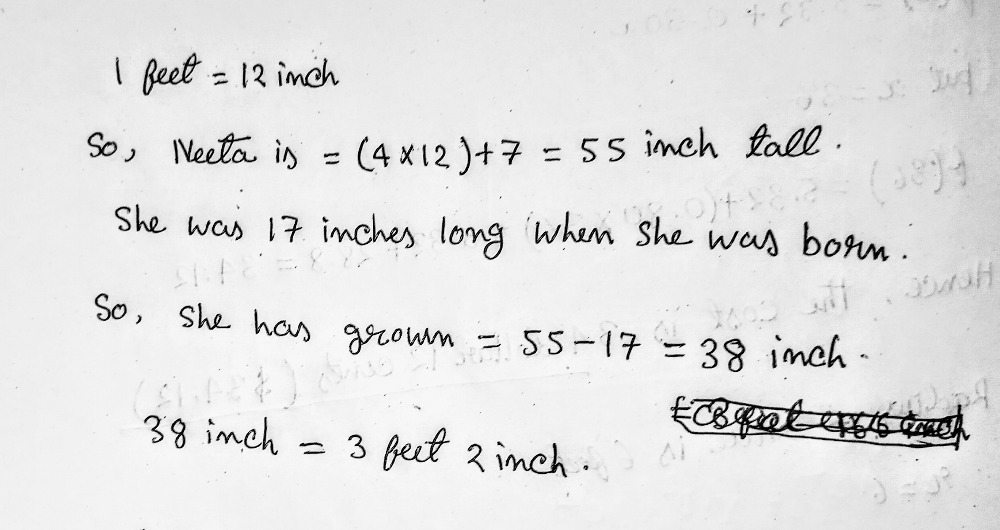 1 feet = 12 inch
So, Neeta is = (4×12)+7 = 55 inch tall.
She was 17 inches long when she was born.
So, she has grown = 55-17 = 38 inch.
38 inch = 3 feet 2 inch.